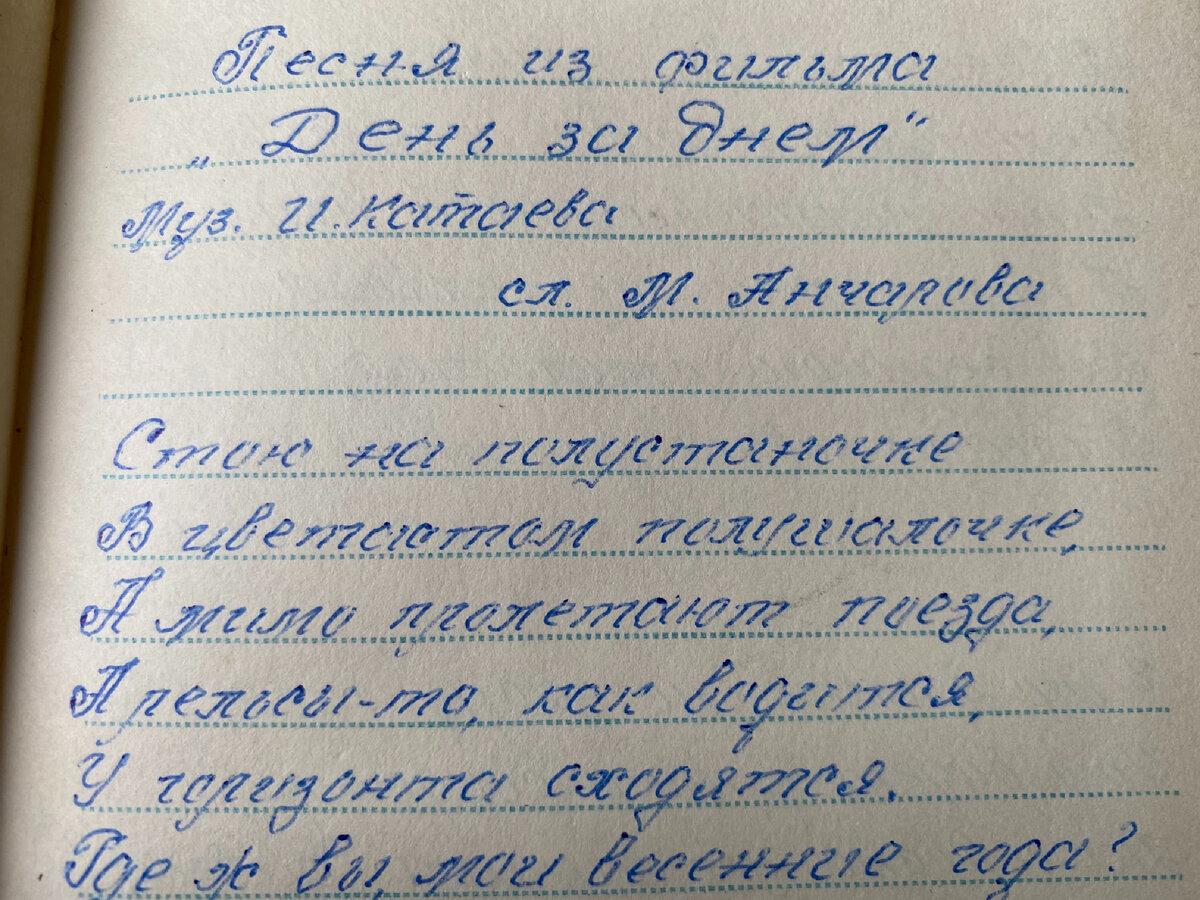 Песня из фильма
„День за днем“
Муз. И. Катаева
сл. М. Анчарова
Стою на полустаночке
В цветастом полушалочке,
А мимо пролетают поезда,
А рельсы-то, как водится,
У горизонта сходятся.
Где ж вы, мои весенние года?